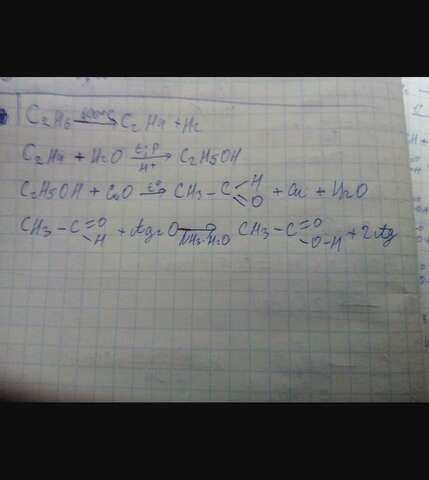 C2H6 800°C→ C2H4 + H2
C2H4 + H2O t; P→ H+ C2H5OH
C2H5OH + CuO t°→ CH3 – C H O + Cu + H2O
CH3 – C = O – H + Ag2O → NH3·H2O CH3 – C = O – O – H + 2Ag